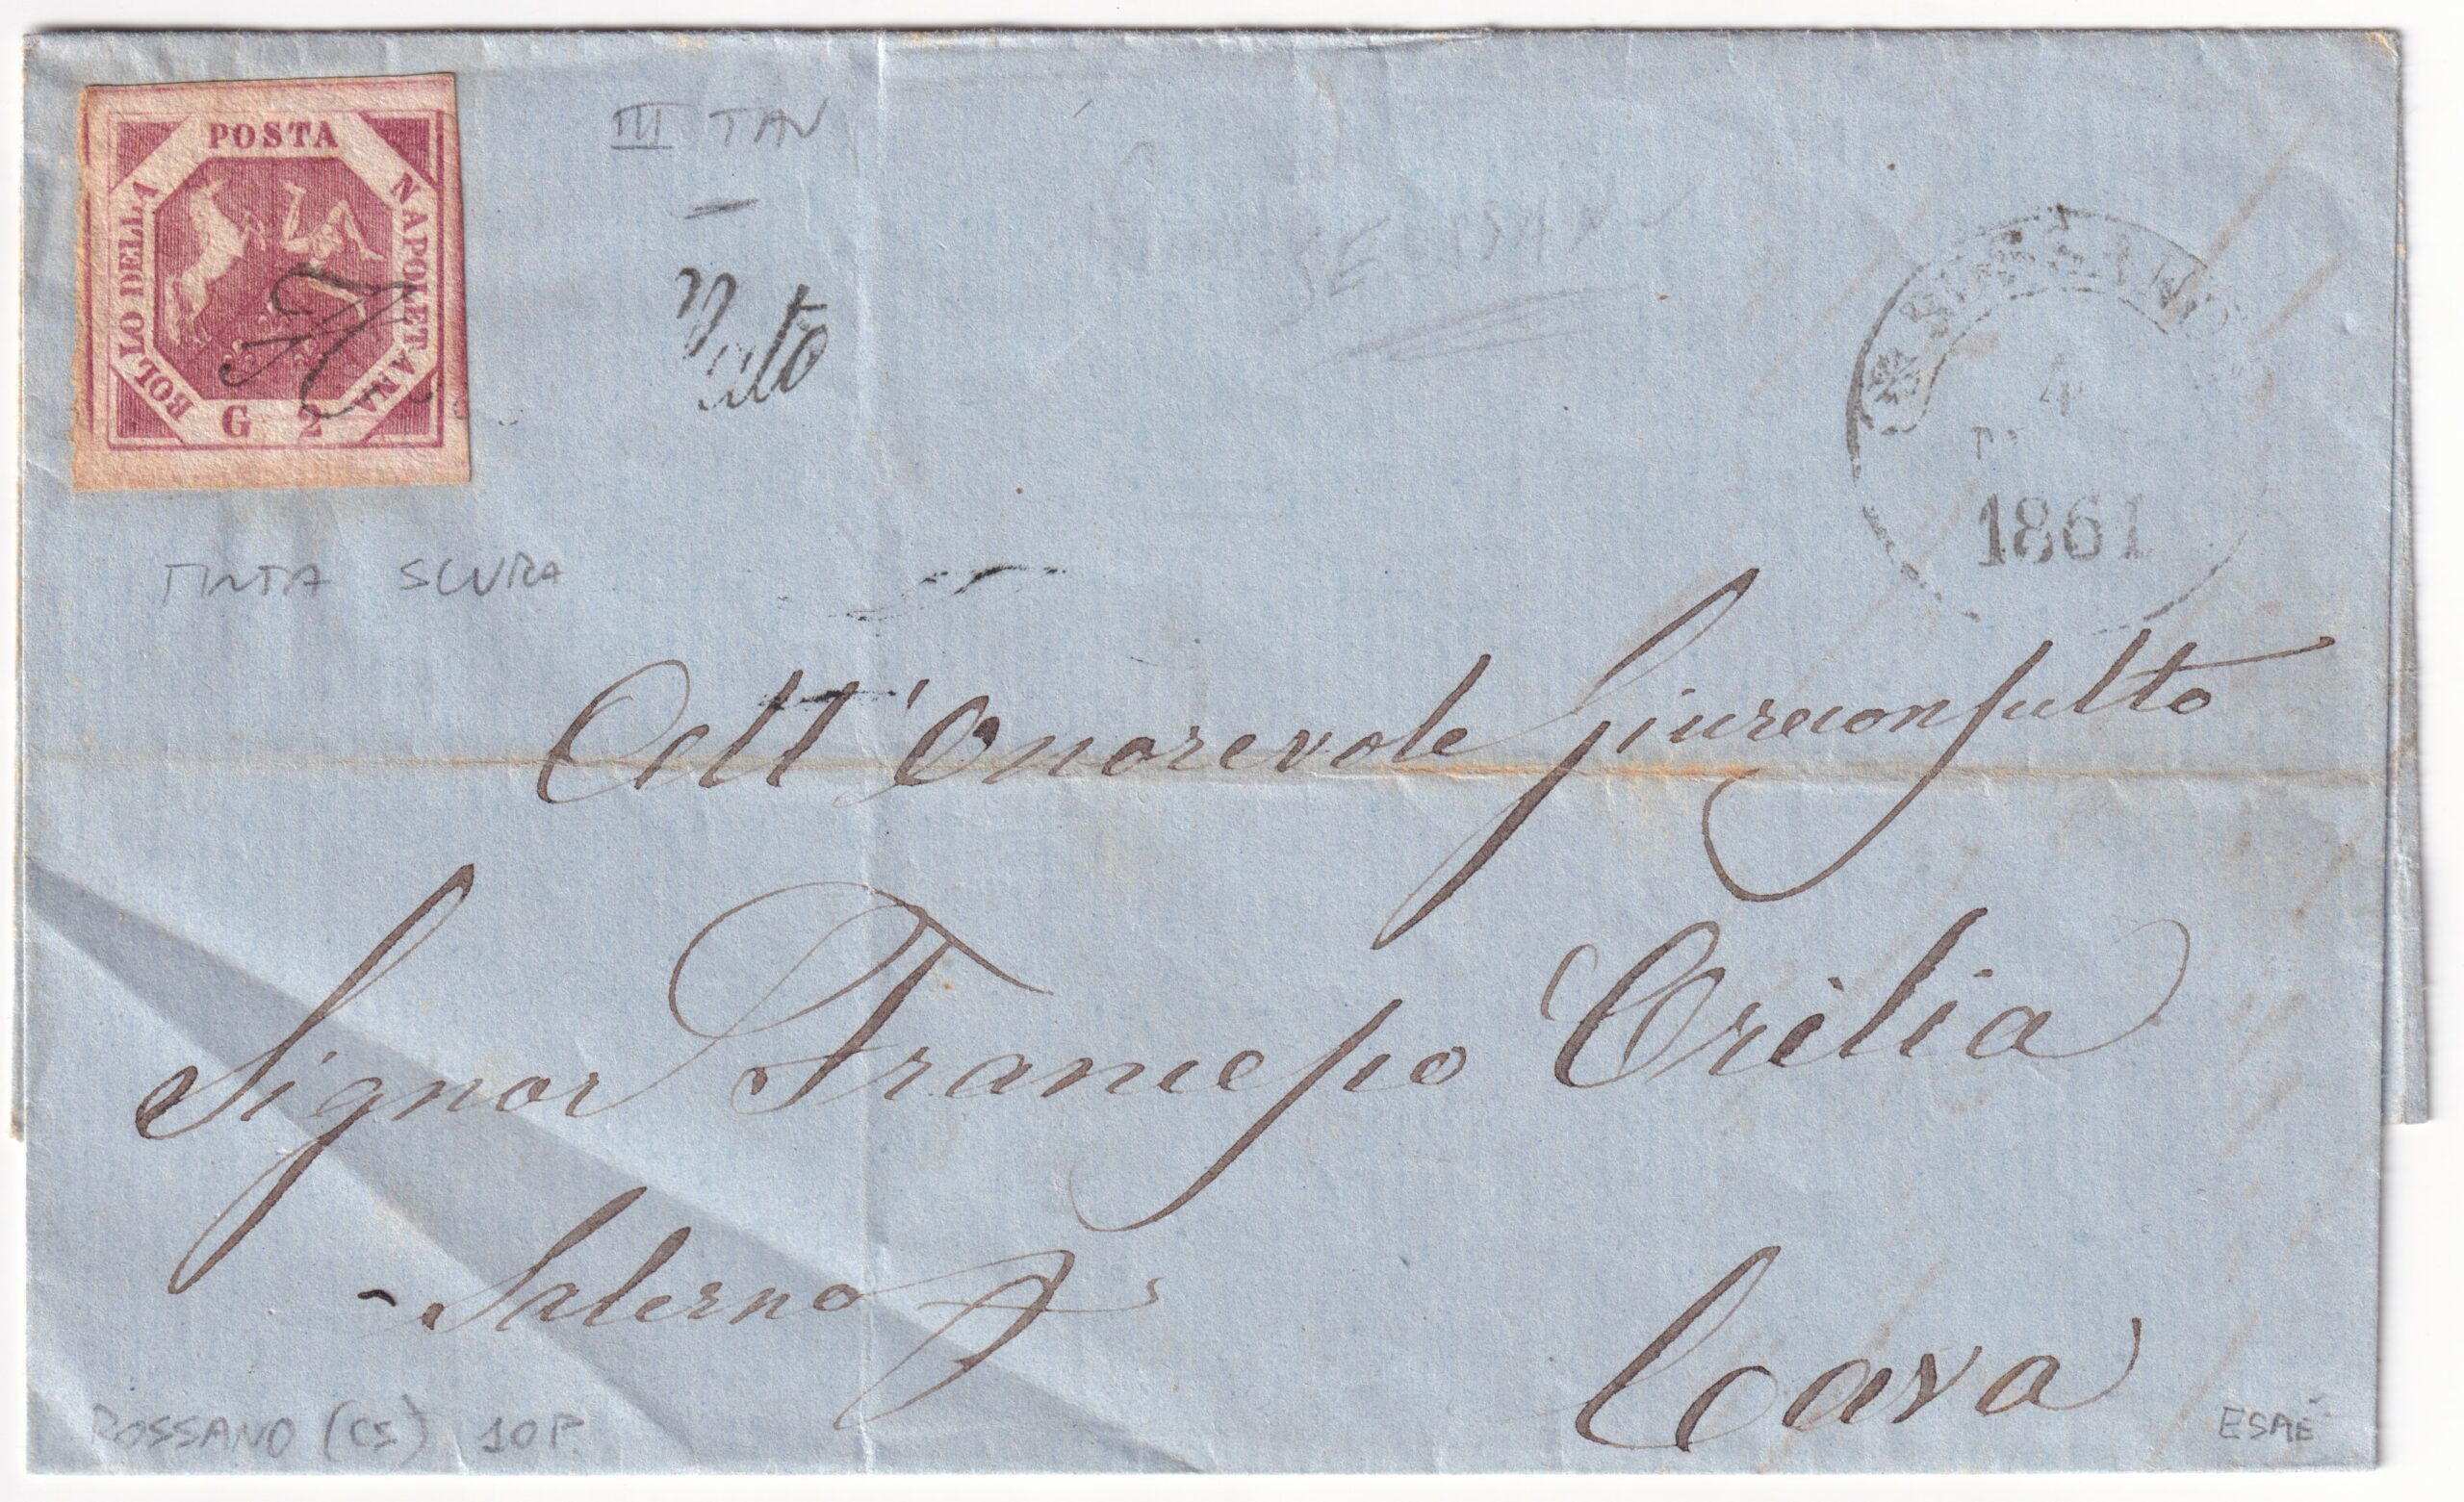 POSTA
BOLLO DELLA
NAPOLETANA
G 2
III TAV
1861
4
TINTA SCURA
All'Onorevole Giureconsulto
Signor Francesco Orilia
Salerno
Cava
ROSSANO (CS) 10 P.